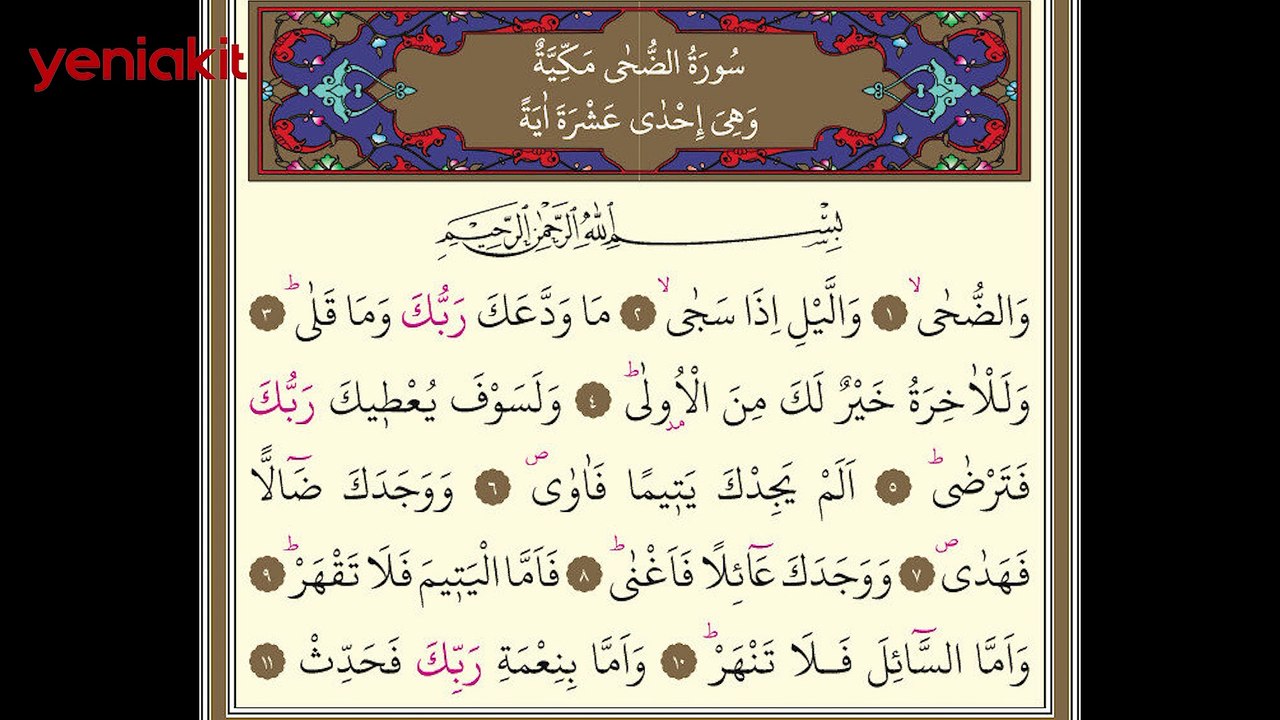 yeniakit
سُورَةُ الضُّحٰى مَكِّيَّةٌ
وَهِىَ اِحْدٰى عَشْرَةَ اٰيَةً
بِسْمِ اللّٰهِ الرَّحْمٰنِ الرَّحِيمِ
وَالضُّحٰىۙ ﴿١﴾ وَالَّيْلِ اِذَا سَجٰىۙ ﴿٢﴾ مَا وَدَّعَكَ رَبُّكَ وَمَا قَلٰىۜ ﴿٣﴾
وَلَلْاٰخِرَةُ خَيْرٌ لَكَ مِنَ الْاُو۫لٰىۜ ﴿٤﴾ وَلَسَوْفَ يُعْط۪يكَ رَبُّكَ
فَتَرْضٰىۜ ﴿٥﴾ اَلَمْ يَجِدْكَ يَت۪يمًا فَاٰوٰىۖ ﴿٦﴾ وَوَجَدَكَ ضَٓالًّا
فَهَدٰىۖ ﴿٧﴾ وَوَجَدَكَ عَٓائِلًا فَاَغْنٰىۜ ﴿٨﴾ فَاَمَّا الْيَت۪يمَ فَلَا تَقْهَرْۜ ﴿٩﴾
وَاَمَّا السَّٓائِلَ فَلَا تَنْهَرْۜ ﴿١٠﴾ وَاَمَّا بِنِعْمَةِ رَبِّكَ فَحَدِّثْ ﴿١١﴾